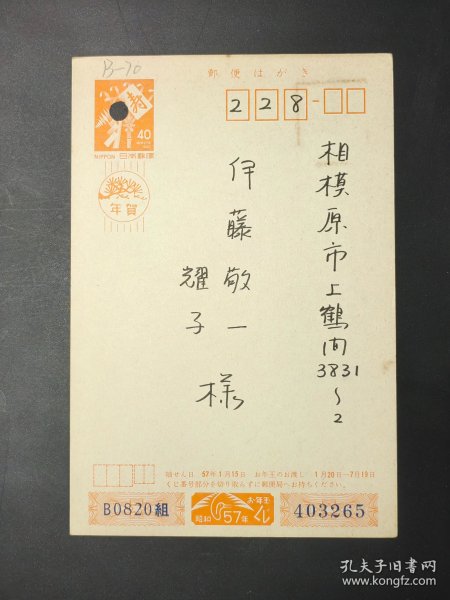 B-70
郵便はがき
40
NIPPON 日本郵便
年賀
228-
相模原市上鶴間
3831
~
2
伊藤敬一
耀子
様
抽せん日 57年1月15日 お年玉のお渡し 1月20日-7月19日
くじ番号部分を切り取らずに郵便局へお持ちください。
B0820組
お年玉
昭和57年くじ
403265
孔夫子旧书网
www.kongfz.com